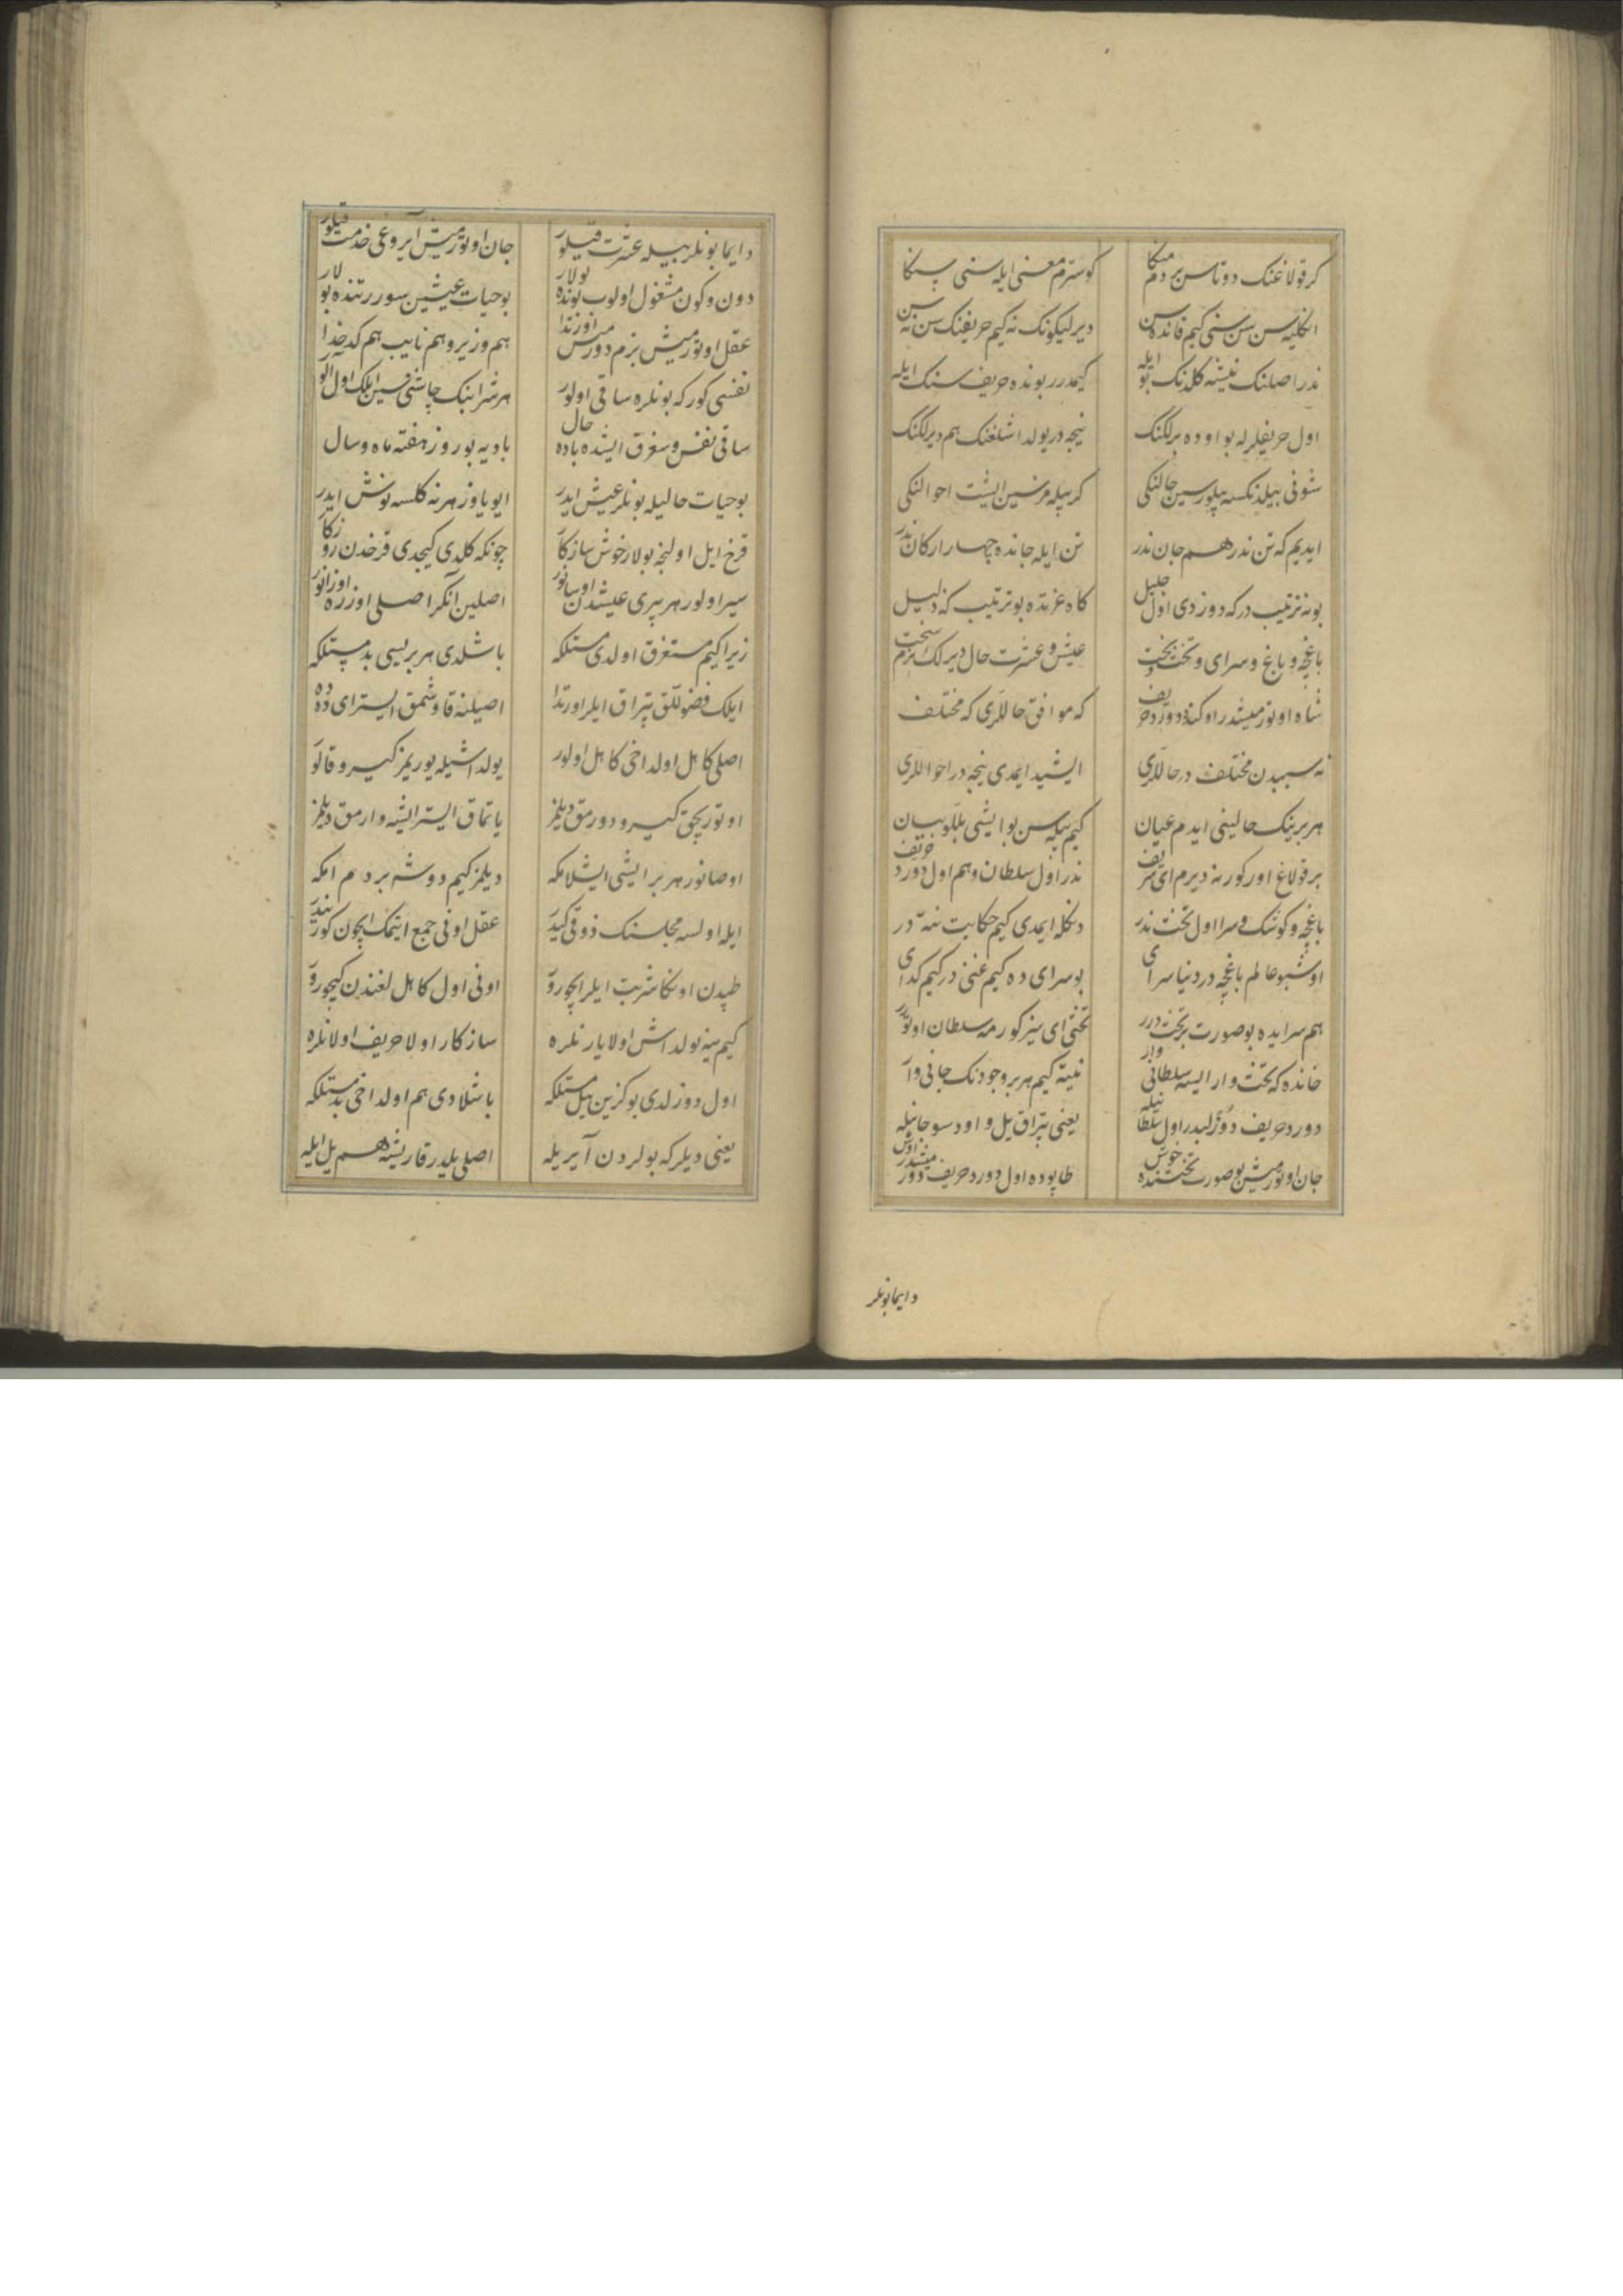 كر قولاغنك دوتاسن بر دم منكا كوسترم معنی ايله سنی سنكا
اكليه سن سن سنی كيم قانده سن ديرليكونك نه كيم حريفنك سن نه سن
ندر اصلنك نيشه كلدنك بو ايله كيمدرر بونده حريف سنك ايله
اول حريفلرله بو اوده برلكنك نيجه در يولداشلغنك هم ديرلكنك
شونی بيله نكسه بيلورسين حالنكی كر بيله مزسين ايشت احوالنكی
ايديم كه تن ندر هم جان ندر تن ايله جانده چهار اركان ندر
بو نه ترتيب در كه دوزدی اول جليل كاه عزتده بو ترتيب كه ذليل
باغچه و باغ و سرای و تخت و بخت عيش و عشرت حال ديرلك نرم سخت
شاه اوتورميشدر اوكنده دورد حريف كه موافق حاللری كه مختلف
نه سببدن مختلف در حاللری ايشيد ايمدی نيجه در احواللری
هر برينك حالينی ايدم عيان كيم بيله سن بو ايشی بللو بيان
بر قولاغ اور كور نه ديرم ای شريف ندر اول سلطان و هم اول دورد حريف
باغچه و كوشك و سرا اول تخت ندر دنكله ايمدی كيم حكايت نته در
اوشبو عالم باغچه در دنيا سرای بو سرای ده كيم غنی در كيم كدای
هم سرايده بو صورت بر تخت درر تختی ای سيز كورمه سلطان اوتورر
خانده كه تخت وار ايسه سلطانی وار نيته كيم هر بر وجودنك جانی وار
دورد حريف دوزلبدر اول سلطانيله يعنی تپراق يل و اود سو جانيله
جان اوتورميش بو صورت تختنده خوش طاپوده اول دورد حريف دورميشدر اوش
دايما بونلر
دايما بونلر بيله عشرت قيلور جان اوتورميش آيروغی خدمت قيلور
دون و كون مشغول اولوب بونده بولار بو حيات عيشين سوررتنده بولار
عقل اوتورميش بزم دورمش اوزتدا هم وزير و هم نايب هم كدخدا
نفسی كور كه بونلره ساقی اولور هر شرابنك چاشنی سين ايلك اول آلور
ساقی نفس و سغرق اليشده باده حال باديه بو روز هفته ماه و سال
بو حيات حاليله بونلر عيش ايدر ايو ياوز هر نه كلسه نوش ايدر
قرخ ايل اولنجه بولار خوش سازكار چونكه كلدی كيجدی قرخدن روزكار
سير اولور هر بری عيشدن اوسانور اصلين آنكر اصلی اوزره اوزانور
زيرا كيم مستغرق اولدی مستلكه باشلدی هر بريسی بد مستلكه
ايلك فضوللق تپراق ايلر اورتدا اصلينه قاوشمق ايستر ای دده
اصلی كاهل اولداخی كاهل اولور يولداشيله يوريمز كيرو قالور
اوتوريجق كيرو دورمق ديلمز ياتماق ايستر ايشه وارمق ديلمز
اوصانور هر بر ايشی ايشلامكه ديلمز كيم دوشه بر دم امكه
ايله اولسه مجلسنك ذوقی كيدر عقل اونی جمع ايتمك ايچون كور نيدر
طپدن اونكا شربت ايلر ايچورو اونی اول كاهل لغندن كيچورو
كيم ينه يولداش اولا يارنلره سازكار اولا حريف اولانلره
اول دوزلدی بو كزين يل مستلكه باشلادی هم اولداخی بد مستلكه
يعنی ديلر كه بولردن آيريله اصلی يلدر قاريشه هم يل ايله